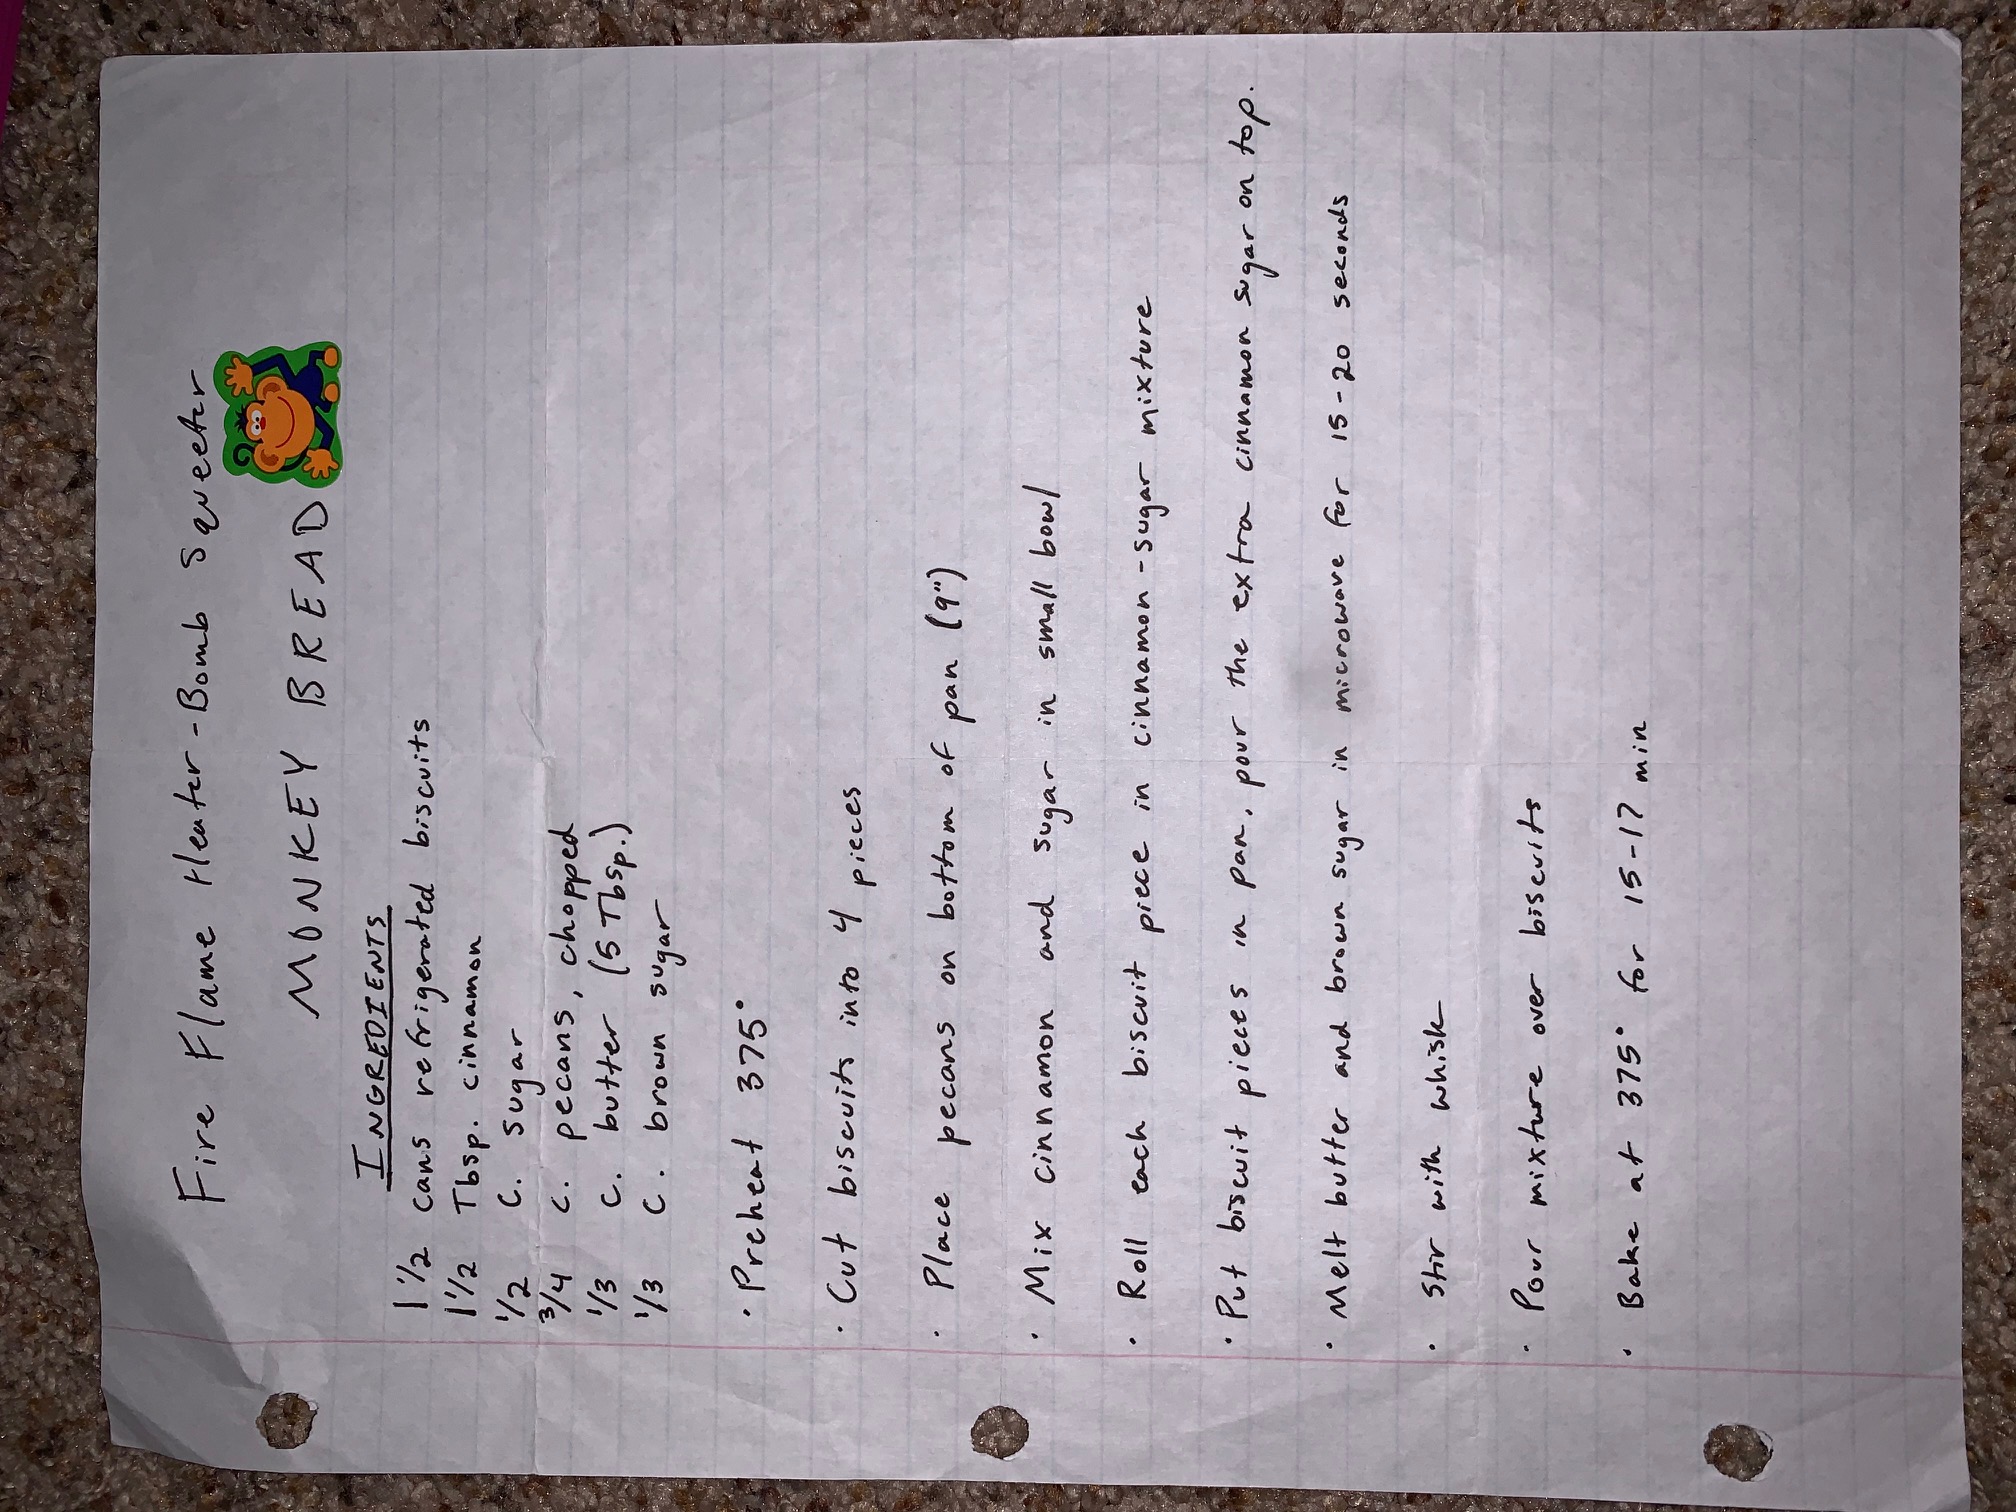 Fire Flame Heater-Bomb Squeeter
MONKEY BREAD
INGREDIENTS
1 1/2 cans refrigerated biscuits
1 1/2 Tbsp. cinnamon
1/2 C. sugar
3/4 C. pecans, chopped
1/3 C. butter (5 Tbsp.)
1/3 C. brown sugar
· Preheat 375°
· Cut biscuits into 4 pieces
· Place pecans on bottom of pan (9")
· Mix cinnamon and sugar in small bowl
· Roll each biscuit piece in cinnamon-sugar mixture
· Put biscuit pieces in pan, pour the extra cinnamon sugar on top.
· Melt butter and brown sugar in microwave for 15-20 seconds
· Stir with whisk
· Pour mixture over biscuits
· Bake at 375° for 15-17 min